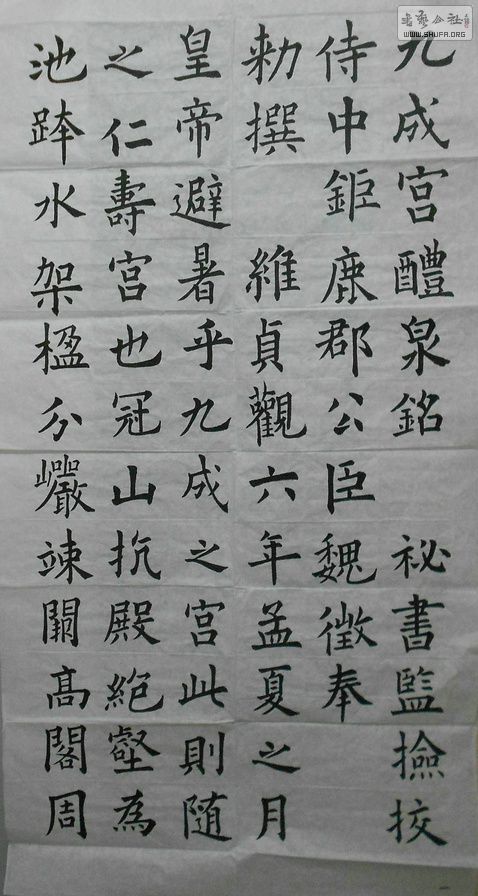 九成宮醴泉銘 祕書監撿挍
侍中鉅鹿郡公臣魏徵奉
勑撰 維貞觀六年孟夏之月
皇帝避暑乎九成之宮此則随
之仁壽宮也冠山抗殿絶壑為
池跨水架楹分巖竦闕高閣周
書藝公社
WWW.SHUFA.ORG